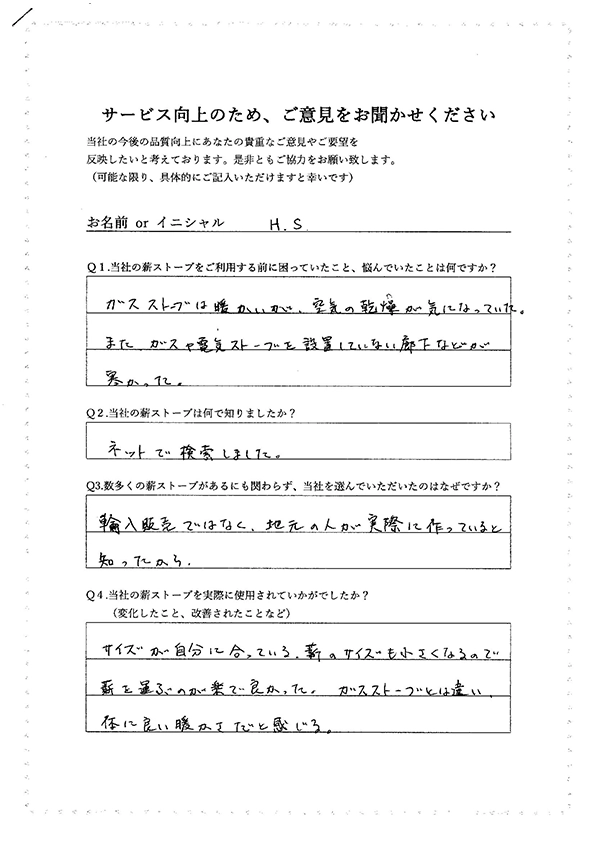 サービス向上のため、ご意見をお聞かせください
当社の今後の品質向上にあなたの貴重なご意見やご要望を
反映したいと考えております。是非ともご協力をお願い致します。
（可能な限り、具体的にご記入いただけますと幸いです）
お名前 or イニシャル H.S
Q1.当社の薪ストーブをご利用する前に困っていたこと、悩んでいたことは何ですか？
ガスストーブは暖かいが、空気の乾燥が気になっていた。
また、ガスや電気ストーブを設置していない廊下などが
寒かった。
Q2.当社の薪ストーブは何で知りましたか？
ネットで検索しました。
Q3.数多くの薪ストーブがあるにも関わらず、当社を選んでいただいたのはなぜですか？
輸入販売ではなく、地元の人が実際に作っていると
知ったから.
Q4.当社の薪ストーブを実際に使用されていかがでしたか？
（変化したこと、改善されたことなど）
サイズが自分に合っている.薪のサイズも小さくなるので
薪を運ぶのが楽で良かった. ガスストーブとは違い.
体に良い暖かさだと感じる。